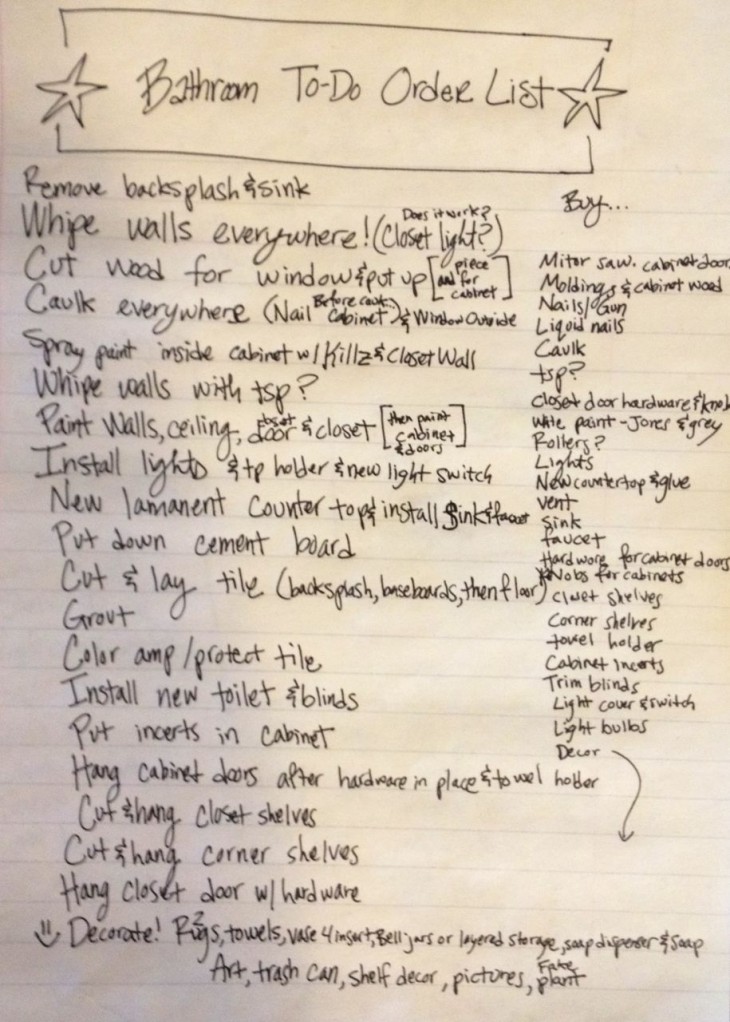 Bathroom To-Do Order List
Remove backsplash & sink
Whipe walls everywhere! (Closet light?) Does it work?
Cut wood for window & put up [piece and for cabinet]
Caulk everywhere (Nail Before caulk cabinet) & Window Outside
Spray paint inside cabinet w/ Killz & Closet Wall
Whipe walls with tsp?
Paint Walls, ceiling, closet door & closet [then paint cabinet & doors]
Install lights & tp holder & new light switch
New lamanent counter top & install sink & faucet
Put down cement board
Cut & lay tile (backsplash, baseboards, then floor)
Grout
Color amp/protect tile
Install new toilet & blinds
Put incerts in cabinet
Hang cabinet doors after hardware in place & towel holder
Cut & hang closet shelves
Cut & hang corner shelves
Hang closet door w/ hardware
Decorate! 2 Rugs, towels, vase 4 insert, Bell jars or layered storage, soap dispenser & soap
Art, trash can, shelf decor, pictures, Fake plant
Buy...
Mitor saw. cabinet door
Moldings & cabinet wood
Nails/Gun
Liquid nails
Caulk
tsp?
closet door hardware & knob
White paint - Jones & grey
Rollers?
Lights
New countertop & glue
vent
sink
faucet
Hardwore for cabinet doors
Knobs for cabinets
Closet shelves
Corner shelves
towel holder
Cabinet incerts
Trim blinds
Light cover & switch
Light bulbs
Decor